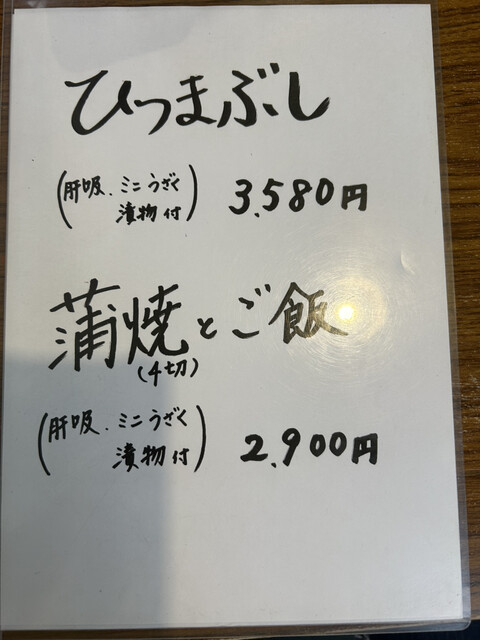 ひつまぶし
(肝吸、ミニうざく
漬物付)
3.580円
蒲焼とご飯
(4切)
(肝吸、ミニうざく
漬物付)
2.900円